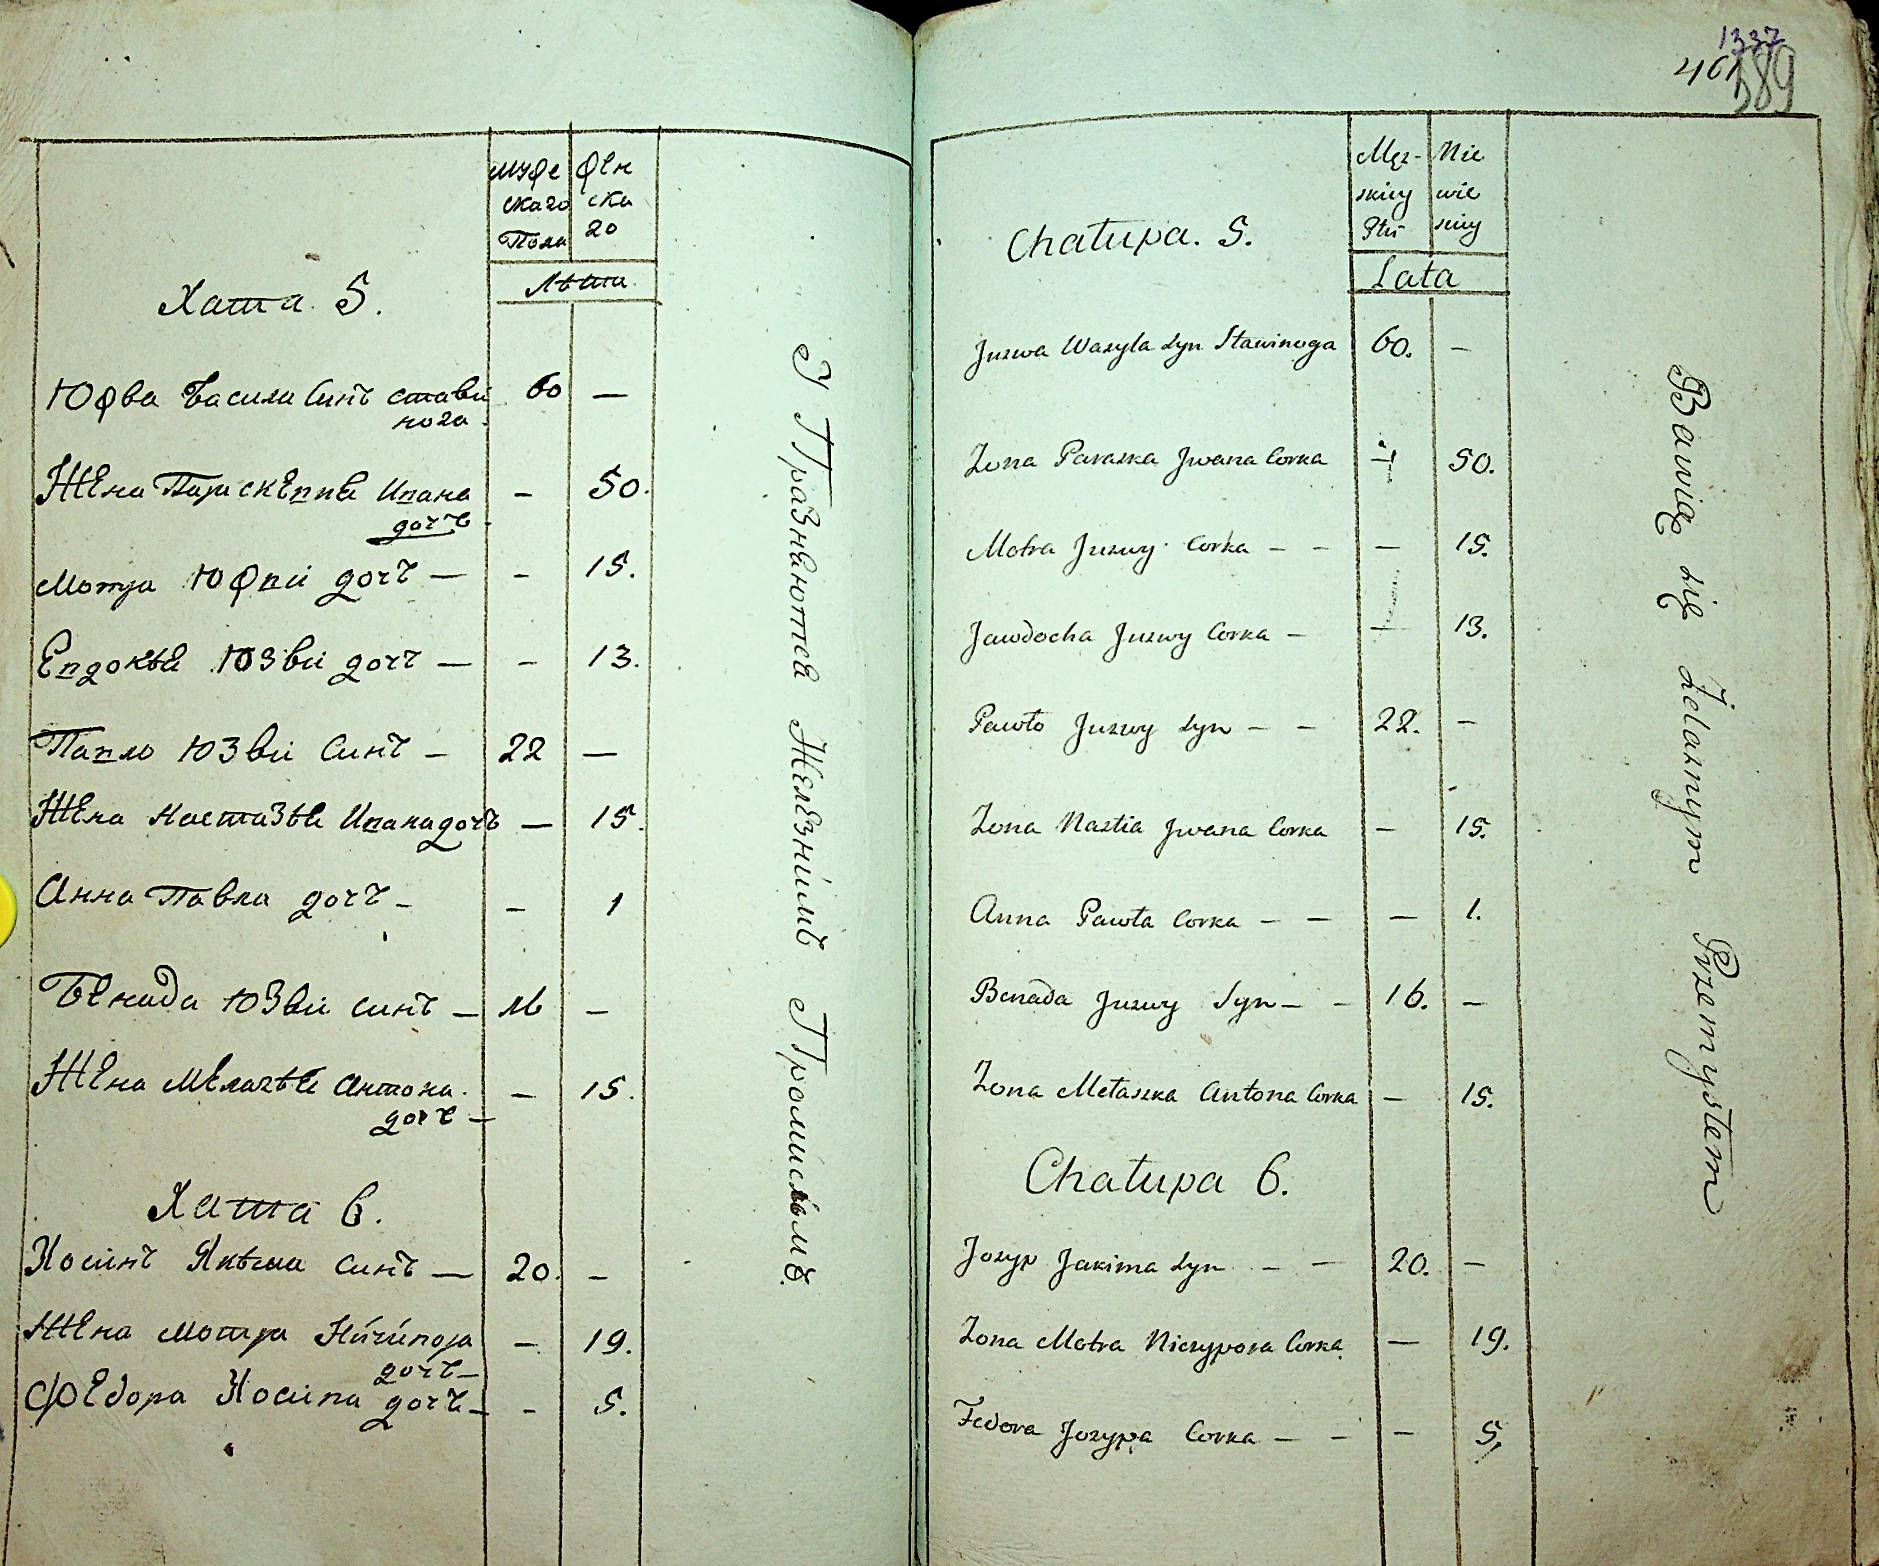 мужескаго Пола
женскаго
Лѣта
Хата 5.
Юзва Василя Синъ Стави
нога.
60 —
Жена Параскевия Ивана
дочъ.
— 50.
Мотря Юзви дочъ — — 15.
Евдокѣя Юзви дочъ — — 13.
Павло Юзви Синъ — 22 —
Жена Настазѣя Ивана дочъ — 15.
Анна Павла дочъ — — 1
Бенада Юзви синъ — 16 —
Жена Мелагѣя Антона.
дочъ —
— 15.
Хата 6.
Иосипъ Якѣма синъ — 20. —
Жена Мотря Ничипора
дочъ —
— 19.
Федора Иосипа дочъ — — 5.
У Празнюются Желѣзнимъ Промисломъ.
1337
461
389
Męz-
skiey
Płci
Nie
wie
sciey
Lata
Chałupa. 5.
Juzwa Wasyla syn Stawinoga 60. —
Zona Paraska Jwana Corka — 50.
Motra Juzwy Corka — — — 15.
Jawdocha Juzwy Corka — — 13.
Pawło Juzwy syn — — 22. —
Zona Nastia Jwana Corka — 15.
Anna Pawła Corka — — — 1.
Benada Juzwy Syn — — 16. —
Zona Mełaszka Antona Corka — 15.
Chałupa 6.
Jozyp Jakima syn — — 20. —
Zona Motra Niczypora Corka — 19.
Fedora Jozypa Corka — — — 5.
Bawią się Żelaznym Przemysłem